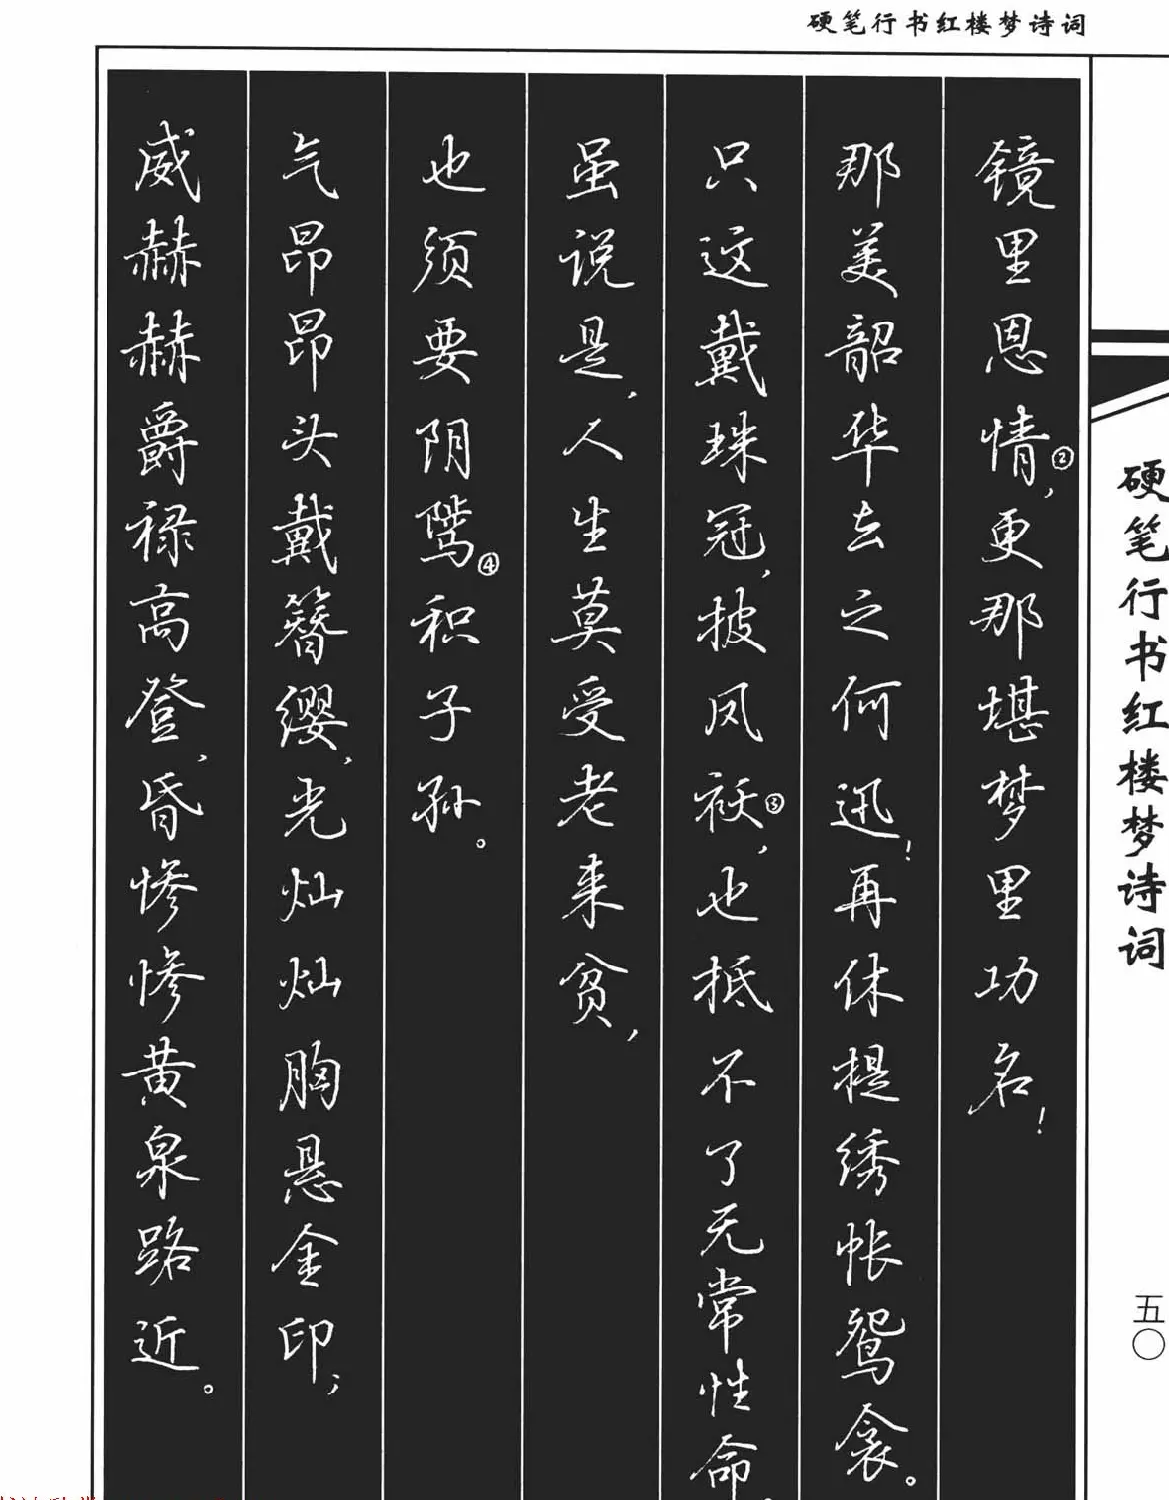 硬笔行书红楼梦诗词
镜里恩情②，更那堪梦里功名！
那美韶华去之何迅！再休提绣帐鸳衾。
只这戴珠冠，披凤袄③，也抵不了无常性命。
虽说是，人生莫受老来贫，
也须要阴骘④积子孙。
气昂昂头戴簪缨，光灿灿胸悬金印；
威赫赫爵禄高登，昏惨惨黄泉路近。
硬笔行书红楼梦诗词
五〇